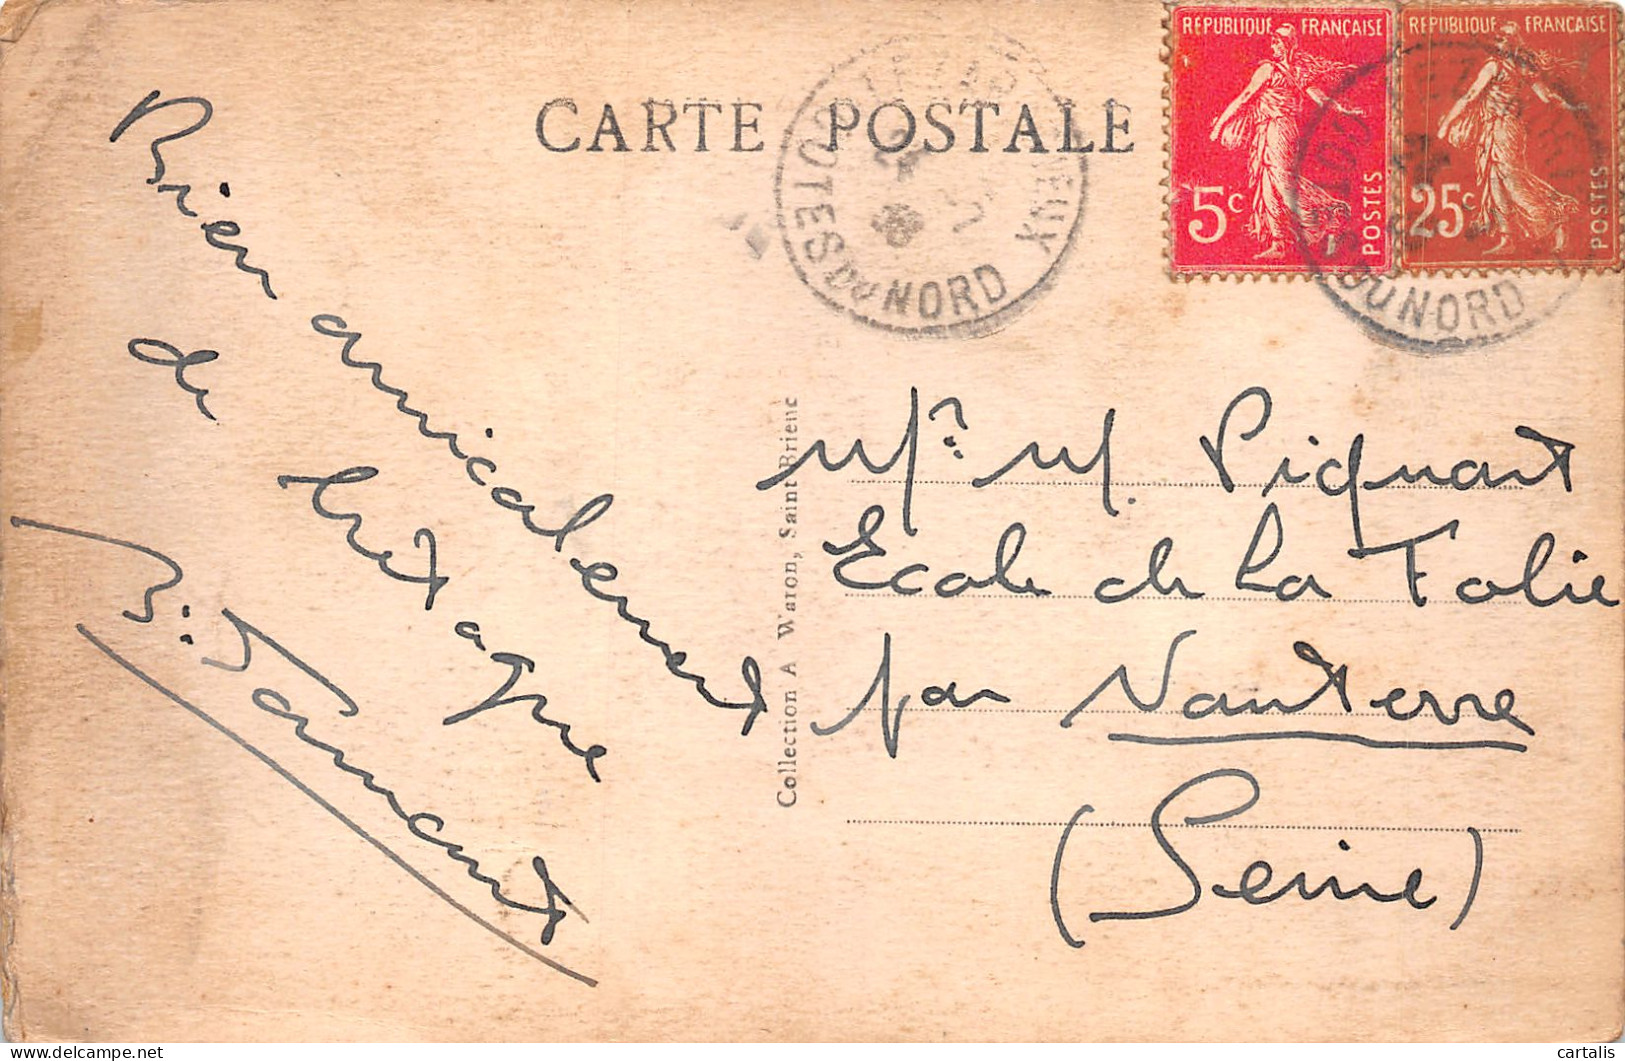 CARTE POSTALE
RÉPUBLIQUE FRANÇAISE
5c
POSTES
RÉPUBLIQUE FRANÇAISE
25c
POSTES
COTES DU NORD
DU NORD
Bien amicalement
de bretagne
Collection A Waron, Saint-Brieuc
Mr. M. Piquart
Ecole de La Folie
par Nanterre
(Seine)
delcampe.net
cartalis